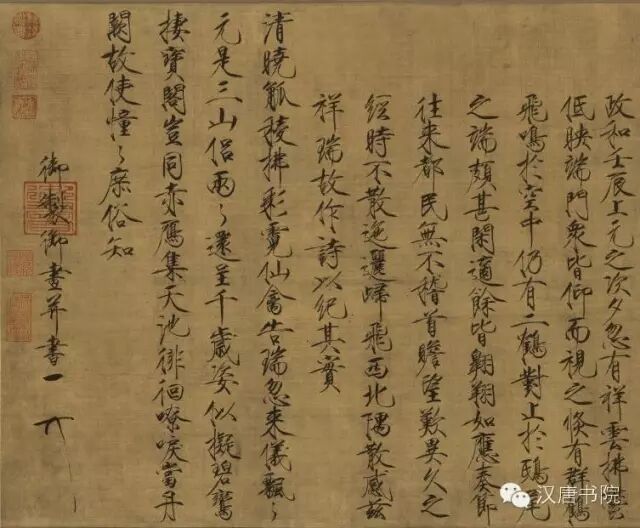 政和壬辰上元之次夕忽有祥雲拂鬱
低映端門衆皆仰而視之倏有群鶴
飛鳴於空中仍有二鶴對止於鴟尾
之端頗甚閑適餘皆翱翔如應奏節
往来都民無不稽首瞻望歎異久之
經時不散迤邐歸飛西北隅散感兹
祥瑞故作詩以紀其實
清曉觚稜拂彩霓仙禽告瑞忽来儀飄〻
元是三山侣兩〻還呈千歲姿似擬碧鸞
棲寶閣豈同赤鴈集天池徘徊嘹唳當丹
闕故使憧〻庶俗知
御製御畫并書
汉唐书院